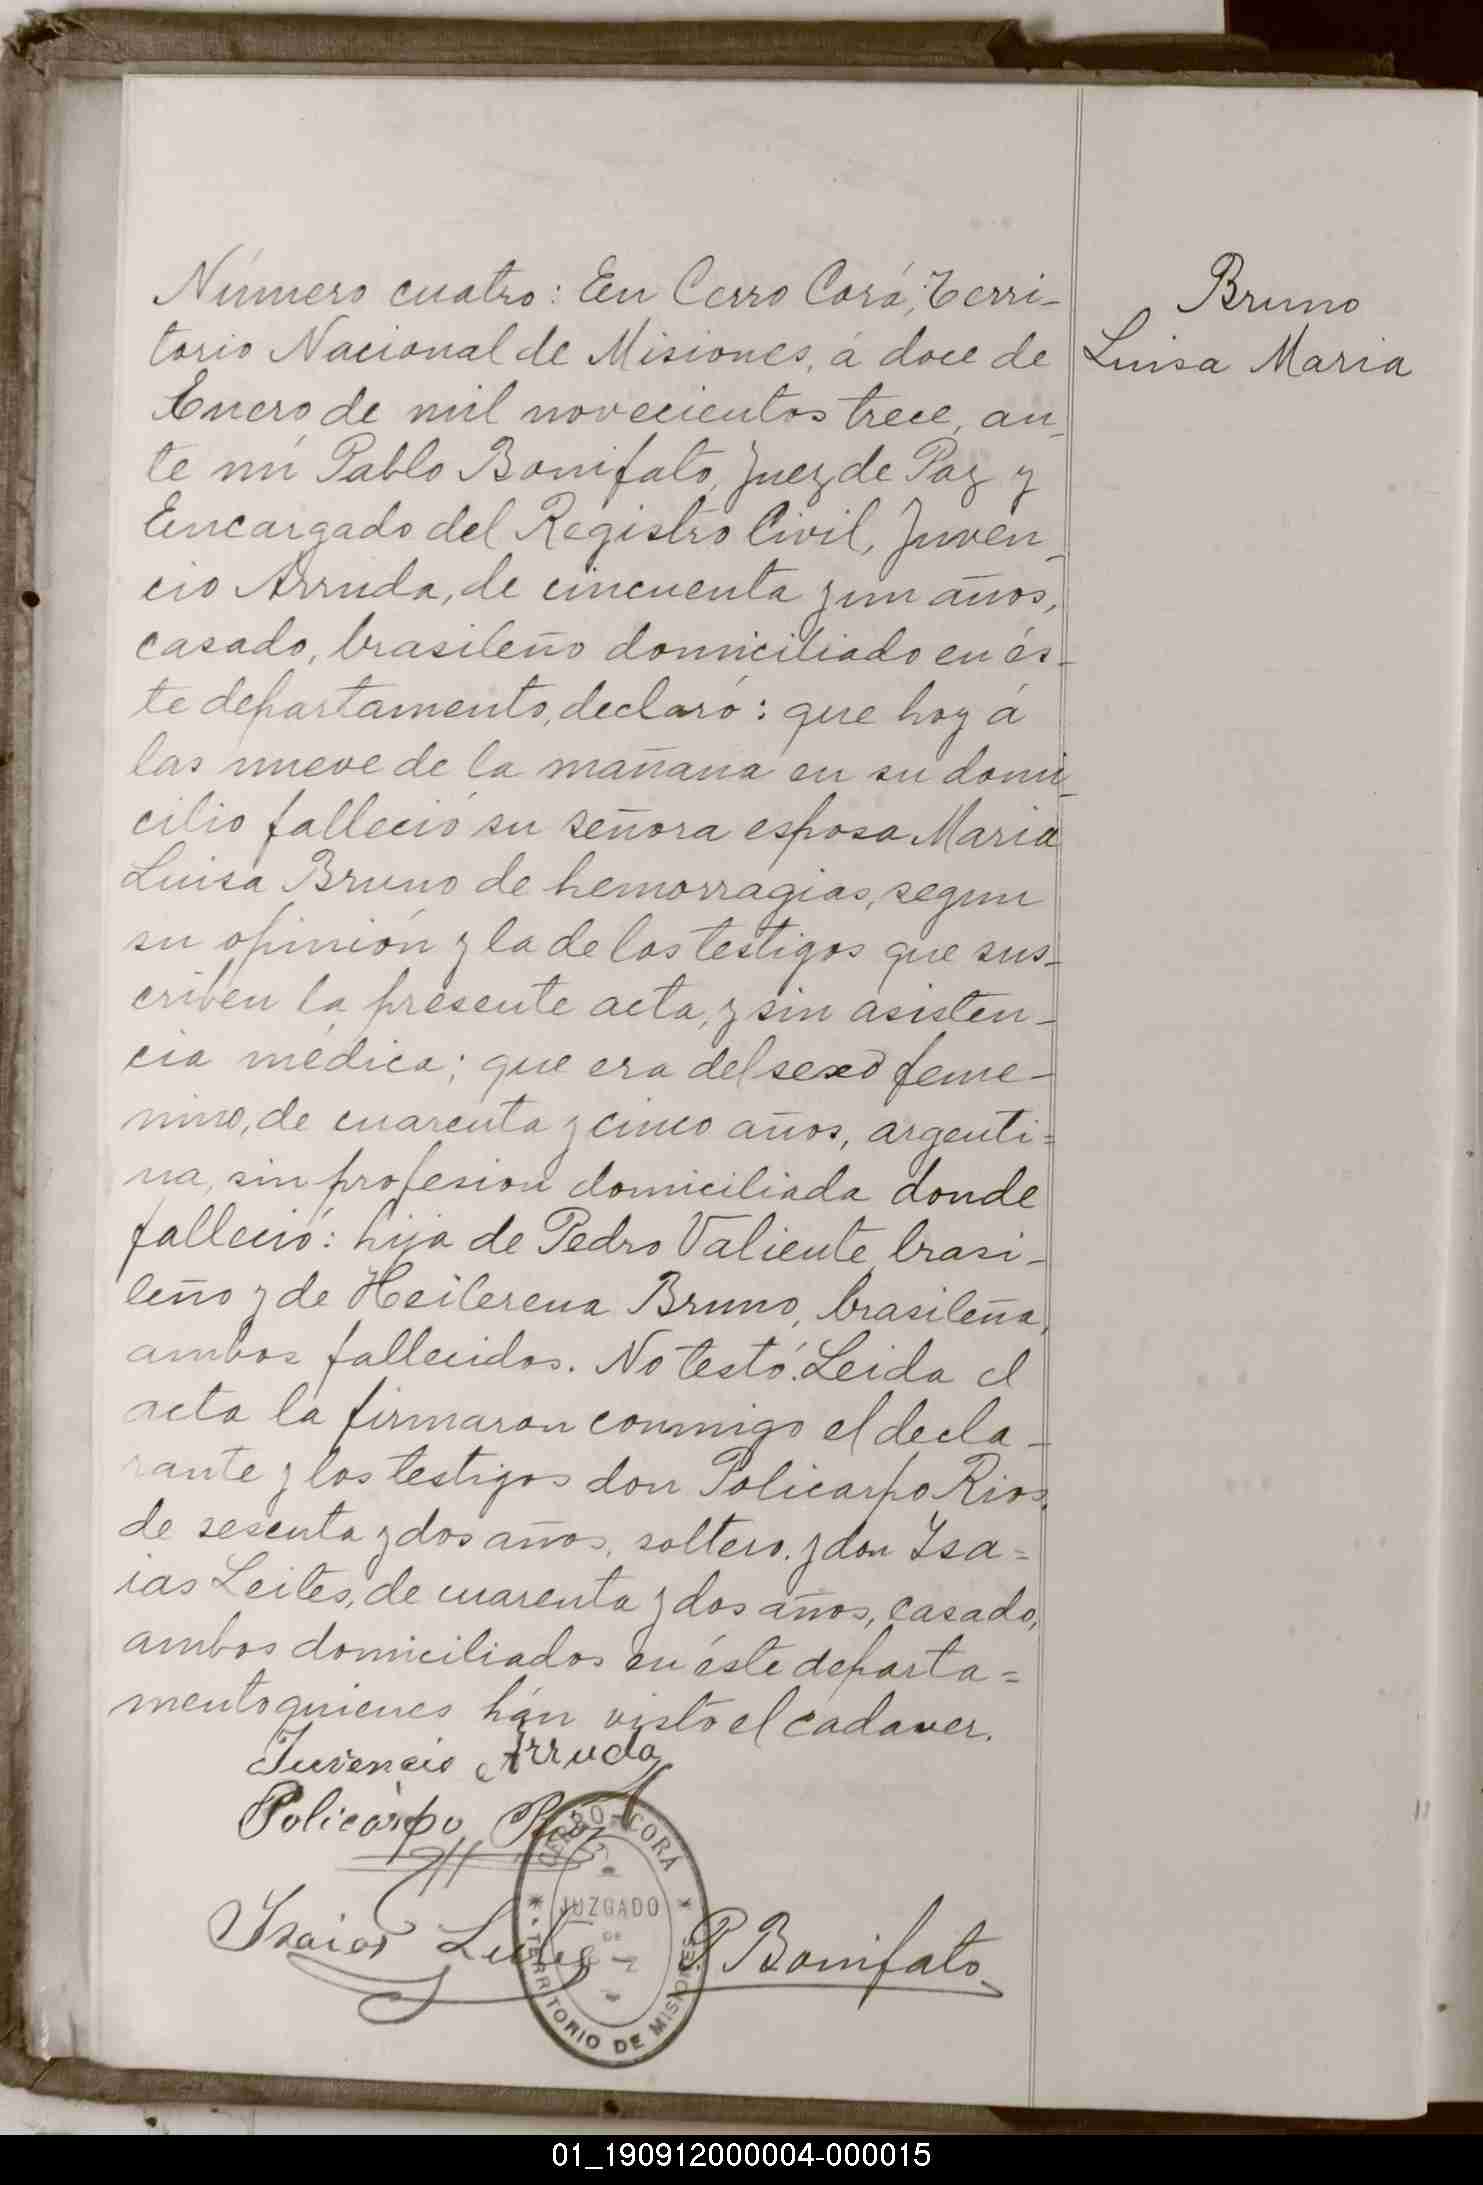 Número cuatro: En Cerro Corá, Terri-
torio Nacional de Misiones, á doce de
Enero de mil novecientos trece, an-
te mí Pablo Bonifato, Juez de Paz y
Encargado del Registro Civil, Juven-
cio Arruda, de cincuenta y un años,
casado, brasileño domiciliado en és-
te departamento, declaró: que hoy á
las nueve de la mañana en su domi-
cilio falleció su señora esposa Maria
Luisa Bruno de hemorragias, segun
su opinión y la de los testigos que sus-
criben la presente acta, y sin asisten-
cia médica; que era del sexo feme-
nino, de cuarenta y cinco años, argenti=
na, sin profesion domiciliada donde
falleció: hija de Pedro Valiente, brasi-
leño y de Heilerena Bruno, brasileña,
ambos fallecidos. No testó. Leida el
acta la firmaron conmigo el decla-
rante y los testigos don Policarpo Rios,
de sesenta y dos años, soltero. y don Isa=
ias Leites, de cuarenta y dos años, casado,
ambos domiciliados en éste departa=
mento quienes hán visto el cadaver.
Juvencio Arruda
Policarpo Rios
Isaias Leites
P Bonifato
CERRO-CORÁ
JUZGADO
DE
TERRITORIO DE MISIONES
Bruno
Luisa Maria
01_190912000004-000015